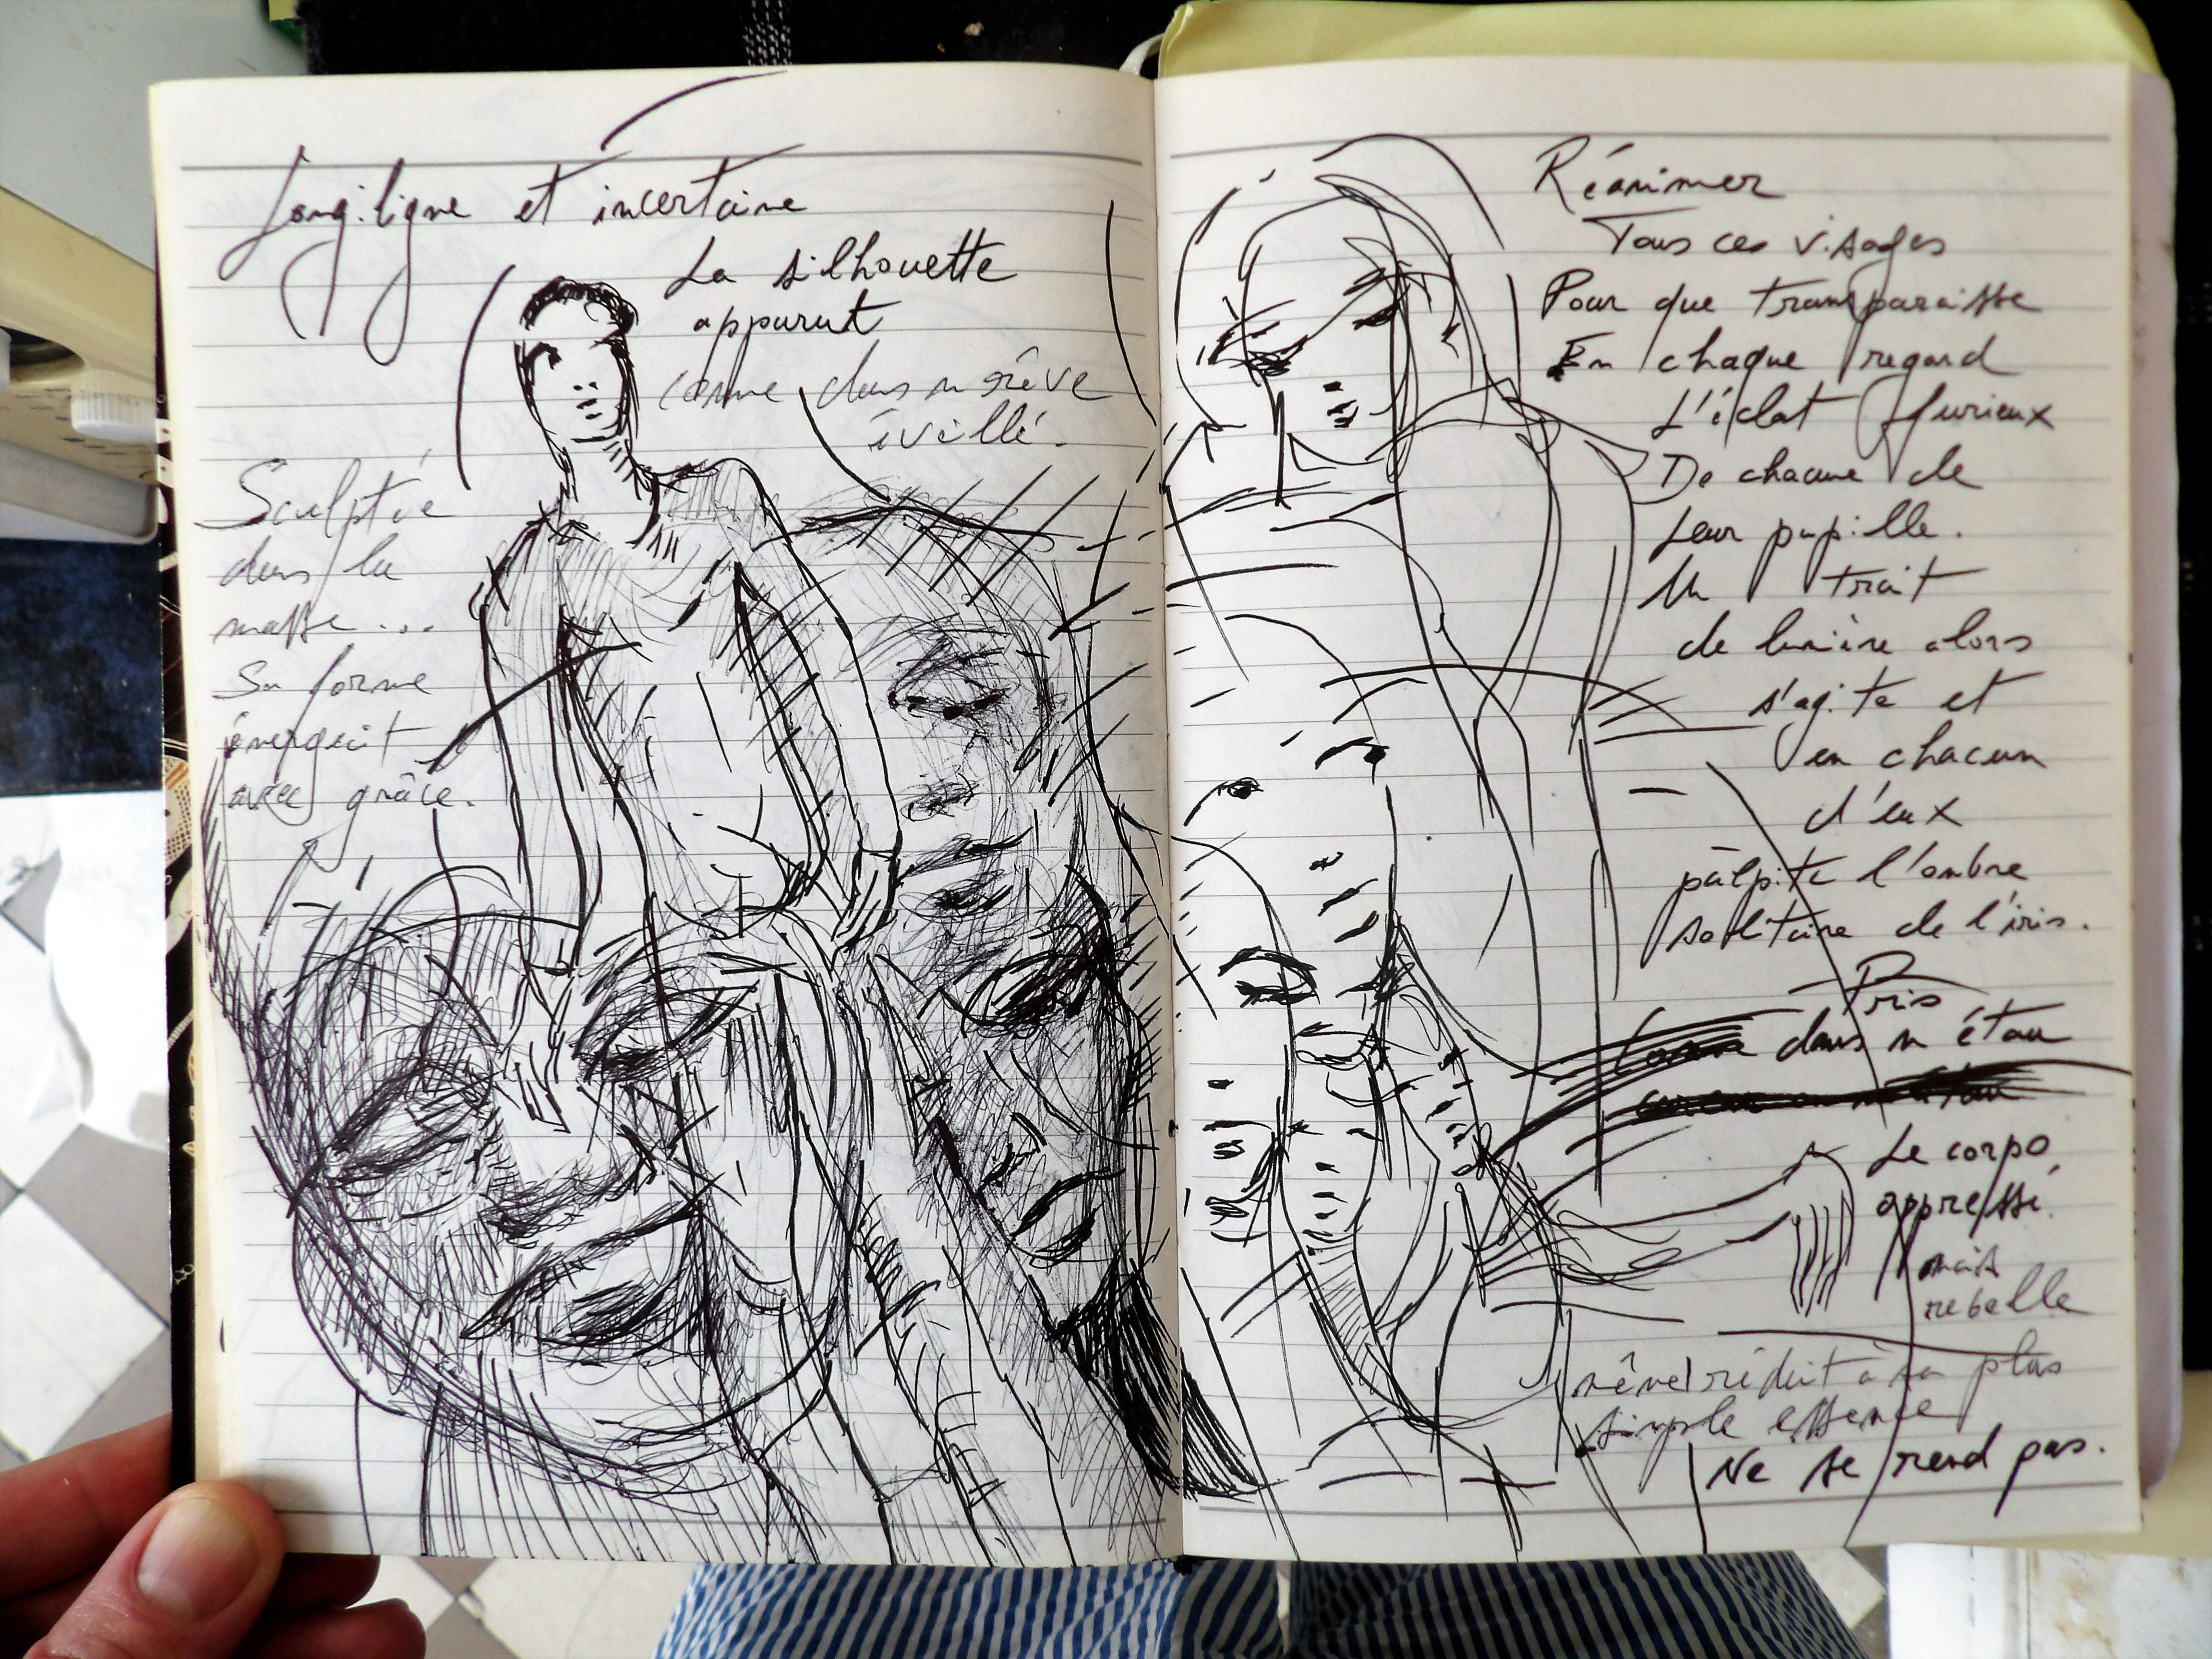 Longiligne et incertaine
La silhouette
apparut
comme dans un rêve
éveillé.
Sculptée
dans la
masse...
Sa forme
émergeait
avec grâce.
Réanimer
Tous ces visages
Pour que transparaisse
En chaque regard
L'éclat furieux
De chacune de
leur pupille.
Un trait
de lumière alors
s'agite et
en chacun
d'eux
palpite l'ombre
solitaire de l'iris.
Pris
dans un étau
Le corps
oppressé.
mais
rebelle
même réduit à sa plus
simple essence
Ne se rend pas.